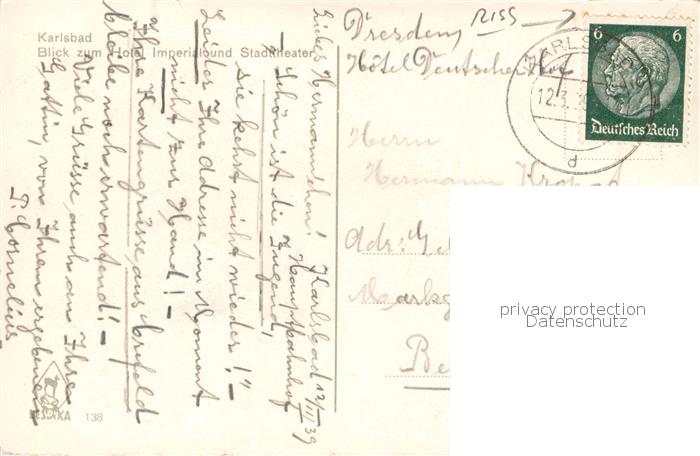 Karlsbad
Blick zum Hotel Imperial und Stadttheater
Liebes Hermannchen!
Karlsbad 12/III/39
Hauptbahnhof
„Schön ist die Jugend,
sie kehrt nicht wieder!"-
Leider Ihre Adresse im Moment
nicht zur Hand! -
Ihre Kartengrüsse aus
bleibe noch erwartend! -
Viele Grüsse auch an Ihre
Gattin, von Ihrem ergebenen
Cornelius
138
Dresden,
RISS
Hôtel Deutscher Hof
Herrn
Hermann
Adr:
Markg
Be
6 6
Deutsches Reich
KARLSBAD
12.3.
d
privacy protection
Datenschutz